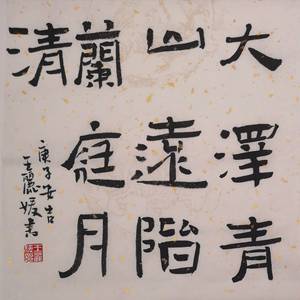 大澤青
山遠階
蘭庭月
清
庚子安吉
王媛書